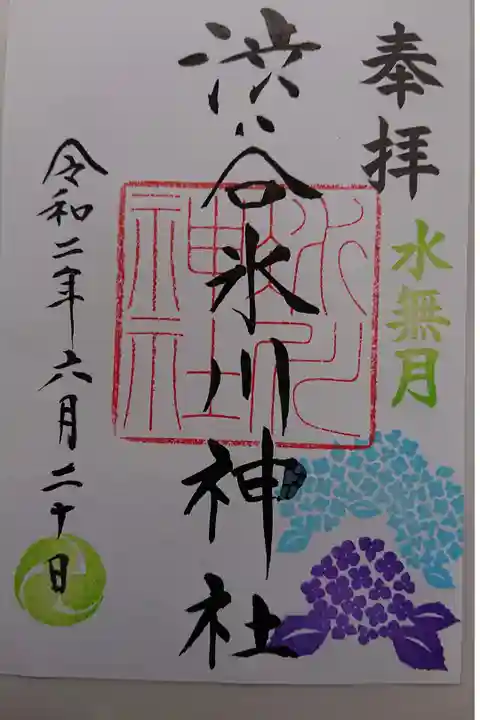 奉拝
水無月
渋谷氷川神社
令和二年六月二十日